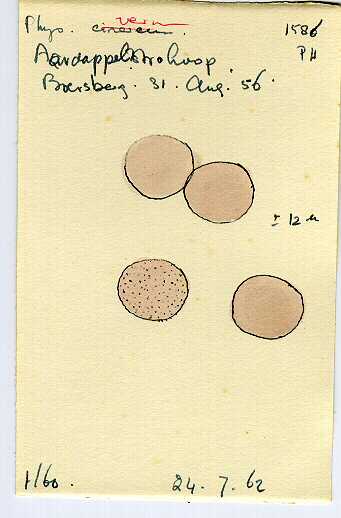 Phys. cinereum. vern 1586
Aardappelstrohoop PH
Boersberg. 31. Aug. 56.
± 12 µ
1/60. 24. 7. 62